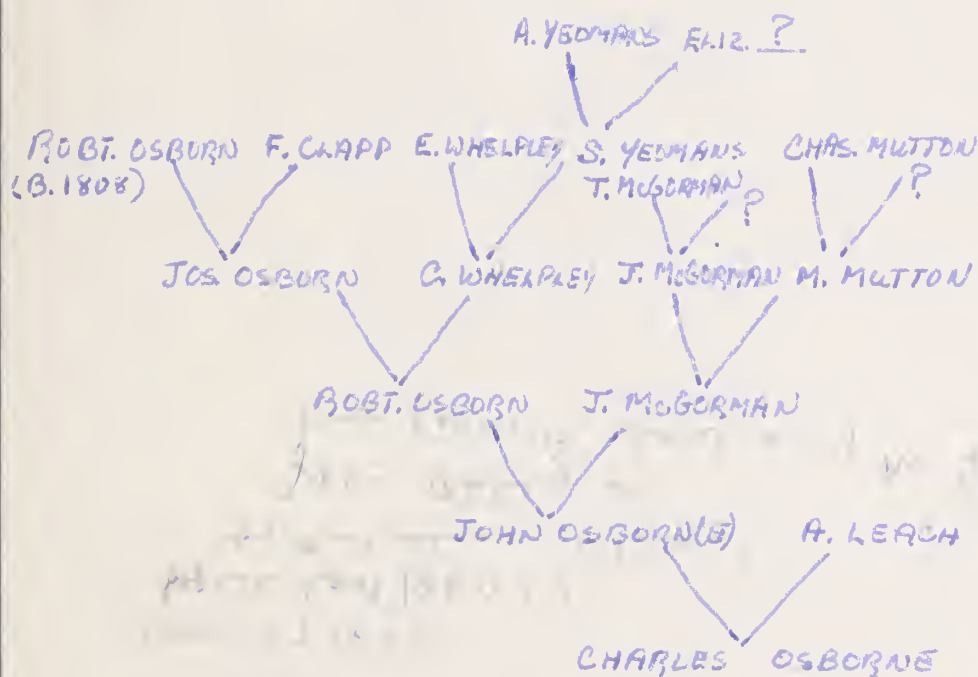 A. YEOMANS ELIZ. ?
ROBT. OSBORN F. CLAPP E. WHELPLEY S. YEOMANS CHAS. MUTTON
(B. 1808) T. McGORMAN ? ?
JOS. OSBORN C. WHELPLEY J. McGORMAN M. MUTTON
ROBT. OSBORN J. McGORMAN
JOHN OSBORN(E) A. LEACH
CHARLES OSBORNE